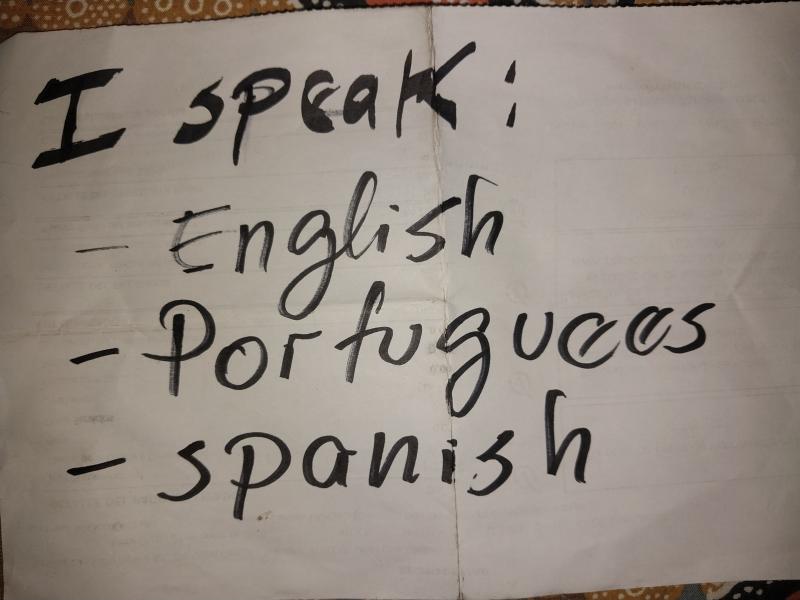 I speak:
- English
- Portuguees
- spanish